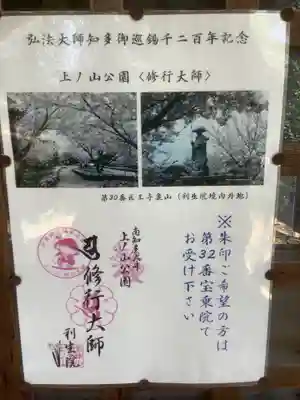 弘法大師知多御巡錫千二百年記念
上ノ山公園〈修行大師〉
第30番医王寺奥山（利生院境内外跡）
※朱印ご希望の方は
第32番宝乗院て
お受け下さい
南知多
上ノ山公園
修行大師
利生院